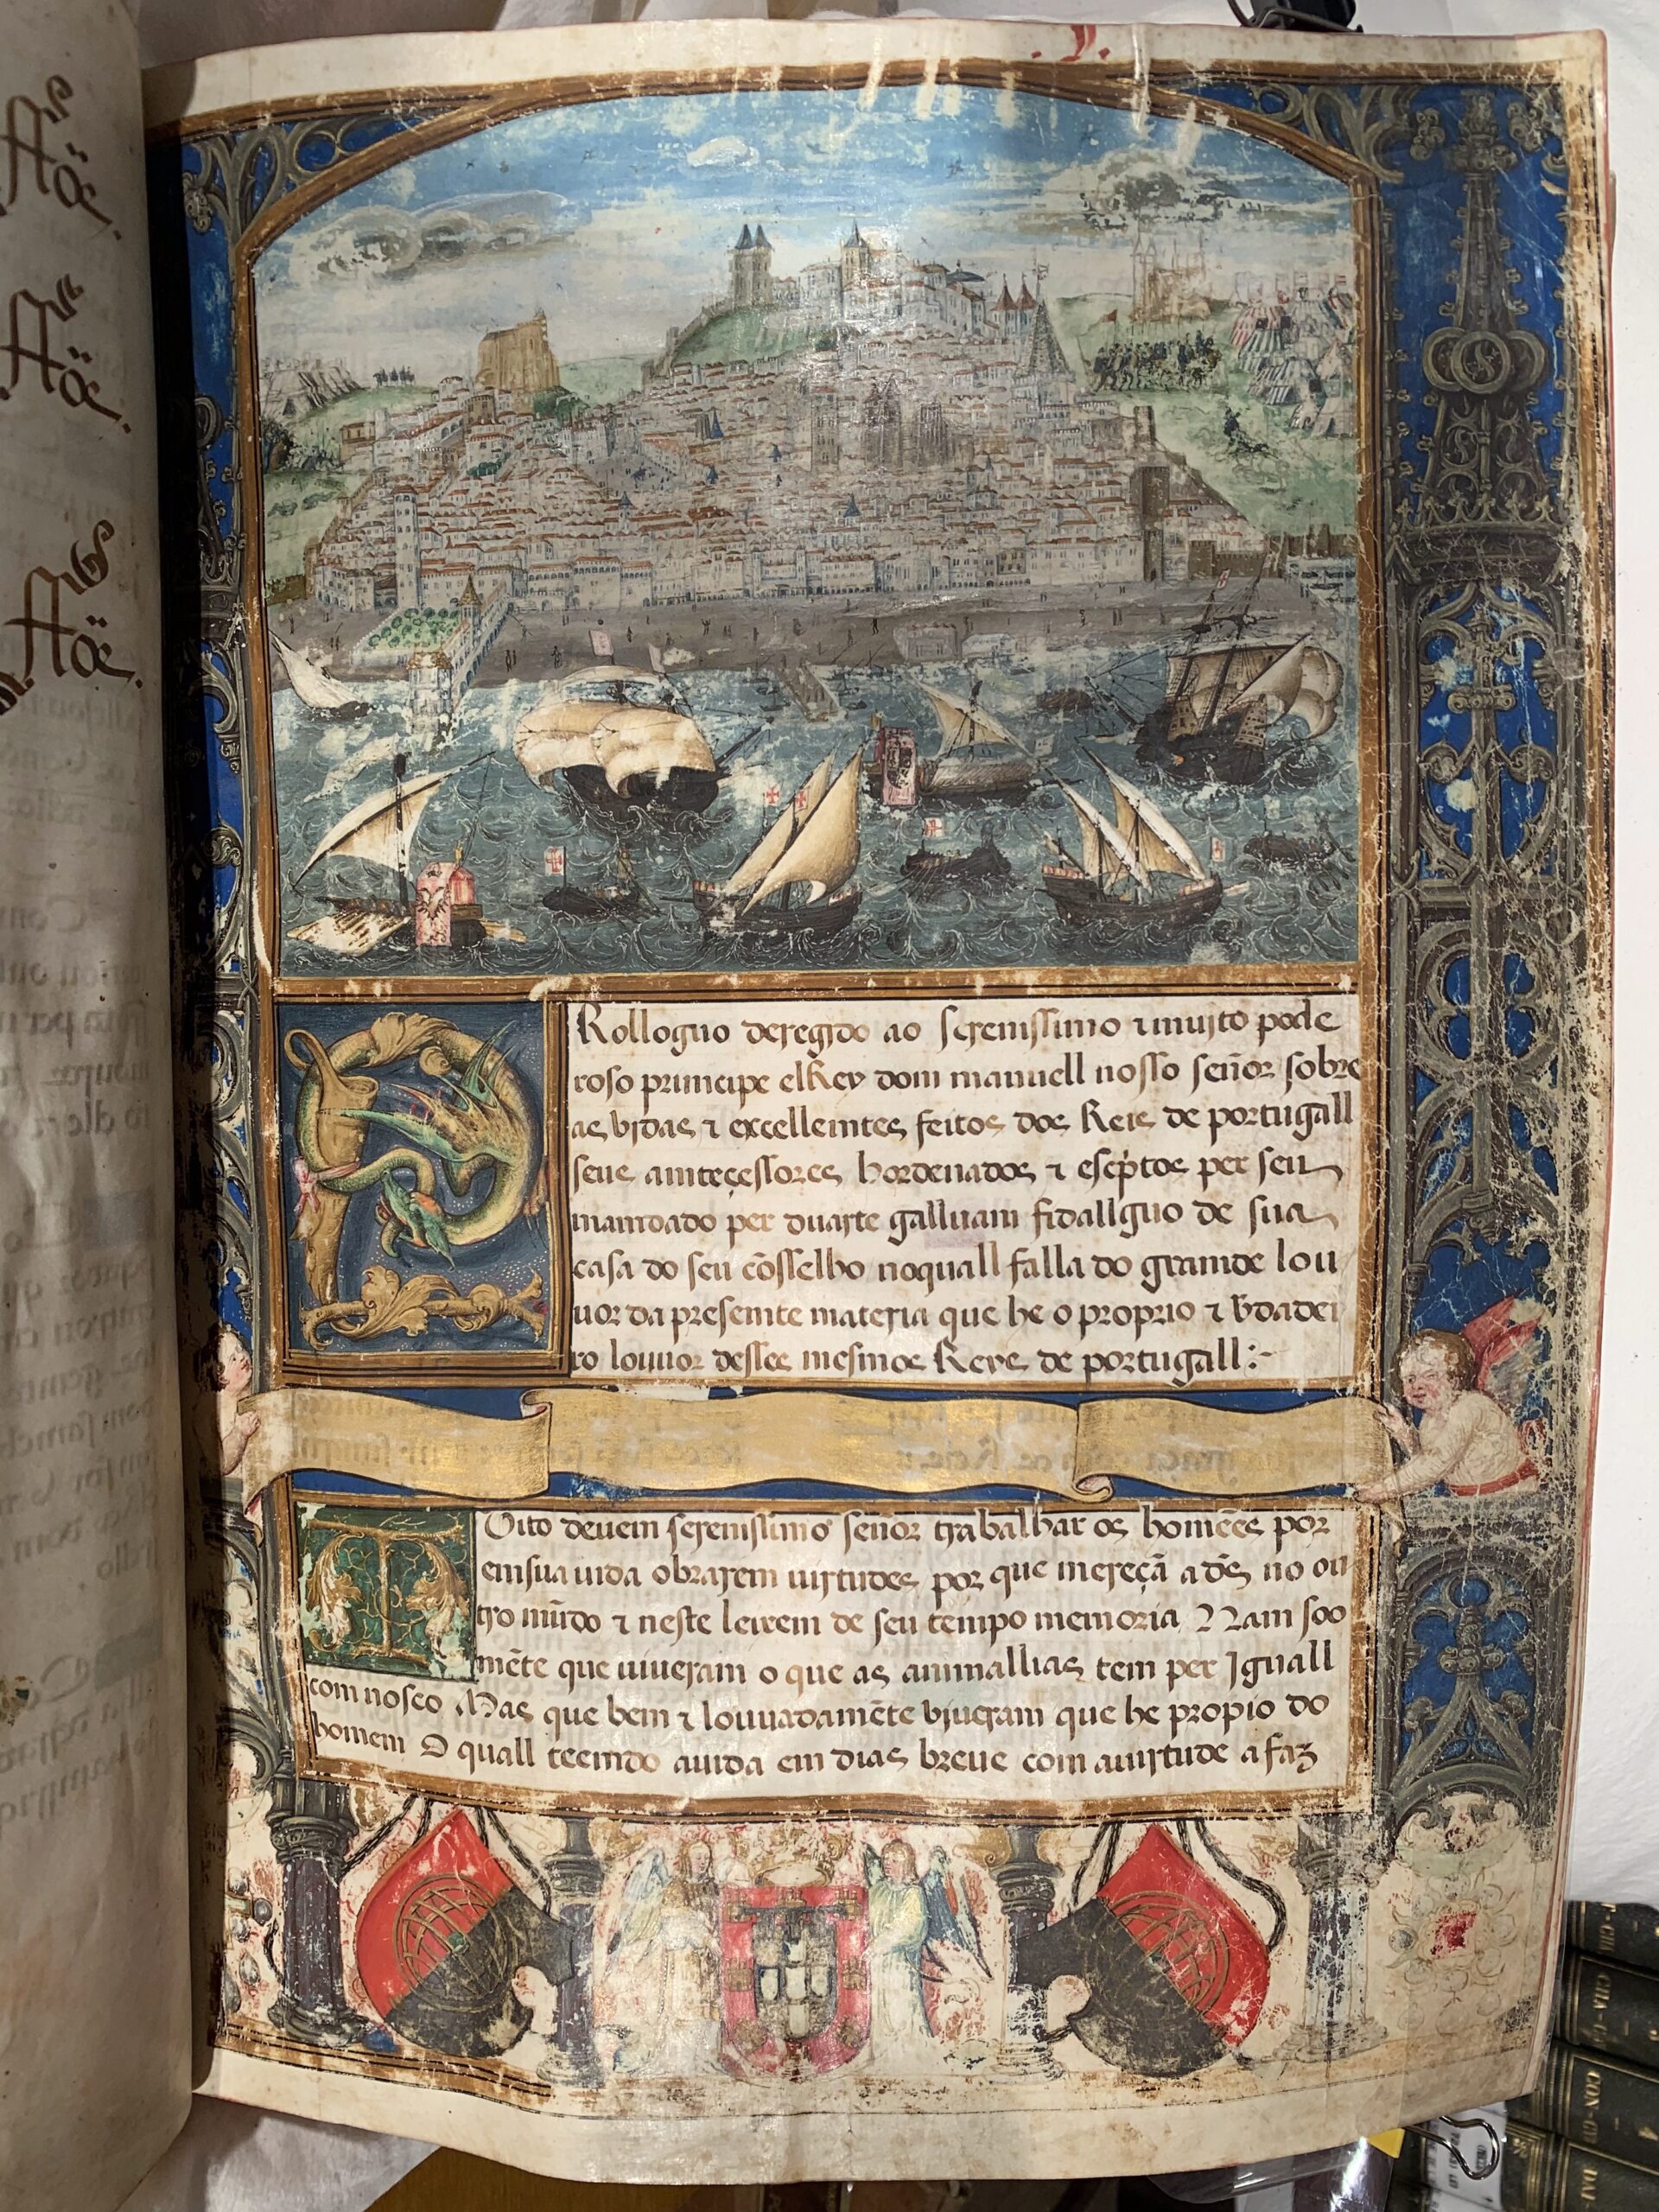 .j.
PRollogno deregido ao serenissimo ⁊ muyto pode
roso principe elRey dom manuell nosso señor sobre
as vydas ⁊ excellemtes feitos dos Reis de portugall
seus amteçessores hordenados ⁊ esc̃ptos per seu
mamdado per duarte galluam fidallguo de sua
casa do seu cõsselho noquall falla do gramde lou
uor da presemte materia que he o proprio ⁊ v̓dadei
ro louuor desses mesmos Reys de portugall :~
MUito deuem serenissimo señor trabalhar os homẽes por
em sua uida obrarem uirtudes por que mereçã a dẽs no ou
tro mũdo ⁊ neste leixem de seu tempo memoria Nam soo
mẽte que uiueram o que as animallias tem per Iguall
com nosco Mas que bem ⁊ louuadamẽte viueram que he propio do
homem O quall teemdo auida em dias breue com auirtude a faz
CHA-CL
CON-CD
DAI